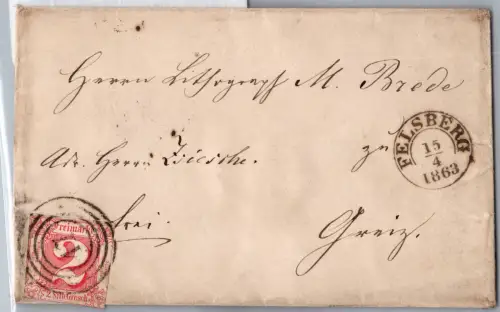 Herrn Lithograph M. Brede
FELSBERG
15
4
1863
Adr. Herrn Ziesche.
zu
frei.
Greiz.
Freimarke
2
2 Silb. Grosch.